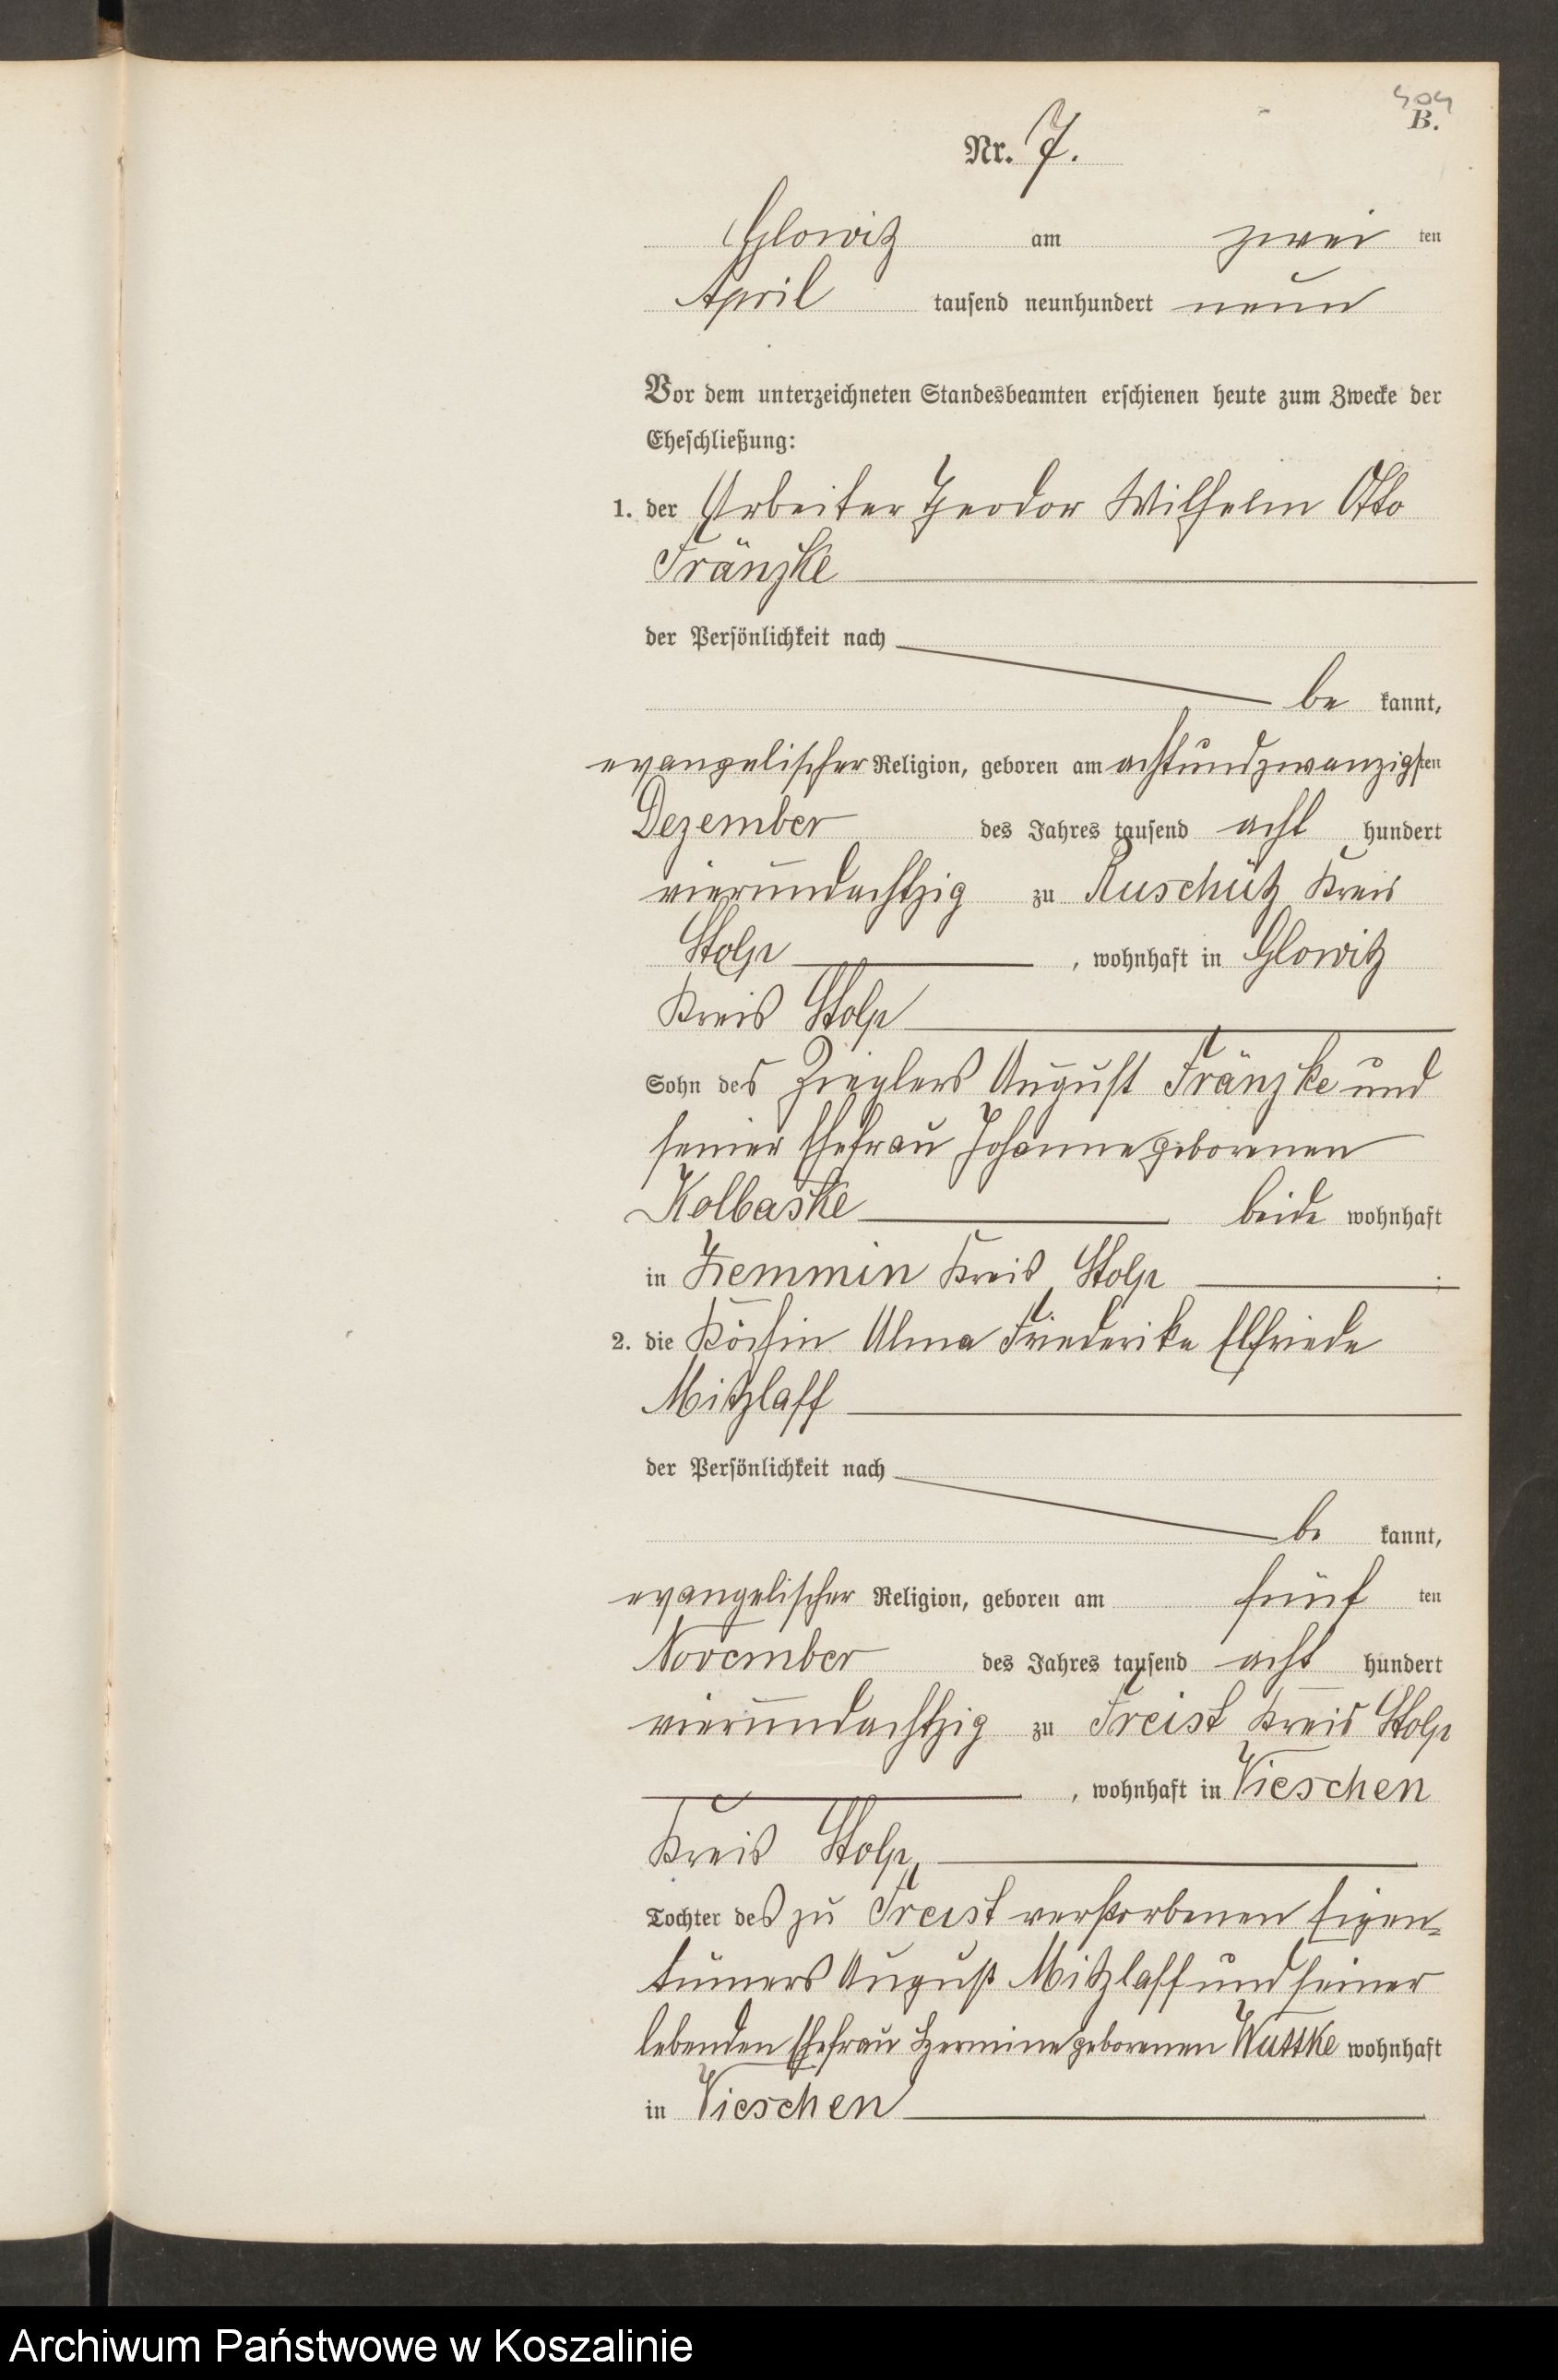 404
B.
Nr. 7.
Glowitz am zwei ten
April tausend neunhundert neun
Vor dem unterzeichneten Standesbeamten erschienen heute zum Zwecke der
Eheschließung:
1. der Arbeiter Theodor Wilhelm Otto
Fränzke
der Persönlichkeit nach
be kannt,
evangelischer Religion, geboren am achtundzwanzigsten
Dezember des Jahres tausend acht hundert
vierundachtzig zu Ruschütz Kreis
Stolp, wohnhaft in Glowitz
Kreis Stolp
Sohn des Zieglers August Fränzke und
seiner Ehefrau Johanne geborenen
Kolbaske beide wohnhaft
in Zemmin Kreis Stolp.
2. die Köchin Alma Friederike Elfriede
Mitzlaff
der Persönlichkeit nach
be kannt,
evangelischer Religion, geboren am fünf ten
November des Jahres tausend acht hundert
vierundachtzig zu Freist Kreis Stolp
, wohnhaft in Vieschen
Kreis Stolp,
Tochter des zu Freist verstorbenen Eigen=
tümers August Mitzlaff und seiner
lebenden Ehefrau Hermine geborenen Wuttke wohnhaft
in Vieschen
Archiwum Państwowe w Koszalinie